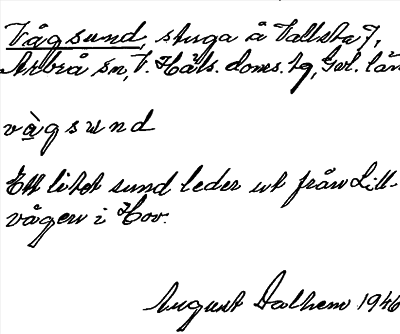 Vågsund, stuga å Vallsta 7,
Arbrå sn, V. Häls. doms. tg, Gvl. län
vàgsund
Ett litet sund leder ut från Lill-
vågen i Hov.
August Dalhem 1946